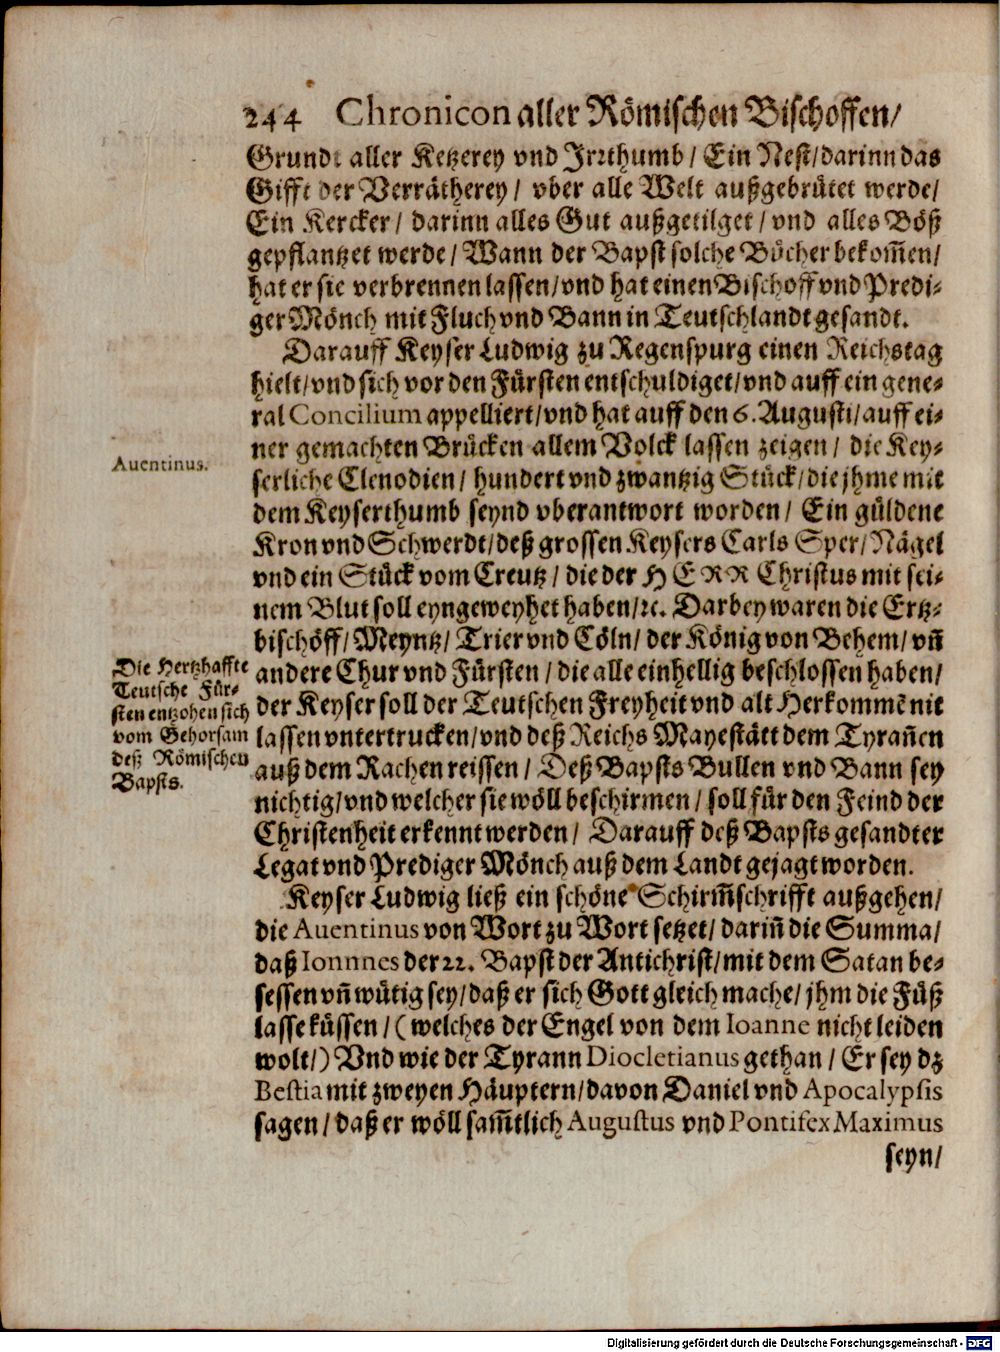 244 Chronicon aller Römischen Bischoffen/
Grund: aller Ketzerey vnd Irꝛthumb/ Ein Nest/darinn das
Gifft der Verrätherey/ vber alle Welt außgebrütet werde/
Ein Kercker/ darinn alles Gut außgetilget/vnd alles Böß
gepflantzet werde/ Wann der Bapst solche Bücher bekom̃en/
hat er sie verbrennen lassen/vnd hat einen Bischoff vnd Predi-
ger Mönch mit Fluch vnd Bann in Teutschlandt gesandt.
Darauff Keyser Ludwig zu Regenspurg einen Reichstag
hielt/vnd sich vor den Fürsten entschuldiget/vnd auff ein gene-
ral Concilium appelliert/vnd hat auff den 6. Augusti/auff ei-
ner gemachten Brücken allem Volck lassen zeigen/ die Key-
Auentinus.
serliche Clenodien/ hundert vnd zwantzig Stück/die jhme mit
dem Keyserthumb seynd vberantwort worden/ Ein güldene
Kron vnd Schwerdt/deß grossen Keysers Carls Sper/Nägel
vnd ein Stück vom Creutz/ die der HERR Christus mit sei-
nem Blut soll eyngeweyhet haben/ꝛc. Darbey waren die Ertz-
bischöff/Meyntz/ Trier vnd Cöln/ der König von Behem/ vñ
andere Chur vnd Fürsten/die alle einhellig beschlossen haben/
der Keyser soll der Teutschen Freyheit vnd alt Herkommẽ nit
lassen vntertrucken/vnd deß Reichs Mayestätt dem Tyrañen
auß dem Rachen reissen/ Deß Bapsts Bullen vnd Bann sey
nichtig/vnd welcher sie wöll beschirmen/ soll für den Feind der
Christenheit erkennt werden/ Darauff deß Bapsts gesandter
Legat vnd Prediger Mönch auß dem Landt gejagt worden.
Die Hertzhaffte
Teutsche Für-
sten entzohen sich
vom Gehorsam
deß Römischen
Bapsts.
Keyser Ludwig ließ ein schöne Schirm̃schrifft außgehen/
die Auentinus von Wort zu Wort setzet/ dariñ die Summa/
daß Ionnnes der 22. Bapst der Antichrist/mit dem Satan be-
sessen vñ wütig sey/daß er sich Gott gleich mache/ jhm die Füß
lasse küssen/ (welches der Engel von dem Ioanne nicht leiden
wolt/) Vnd wie der Tyrann Diocletianus gethan/ Er sey dz
Bestia mit zweyen Häuptern/davon Daniel vnd Apocalypsis
sagen/daß er wöll sam̃tlich Augustus vnd Pontifex Maximus
seyn/
Digitalisierung gefördert durch die Deutsche Forschungsgemeinschaft - DFG